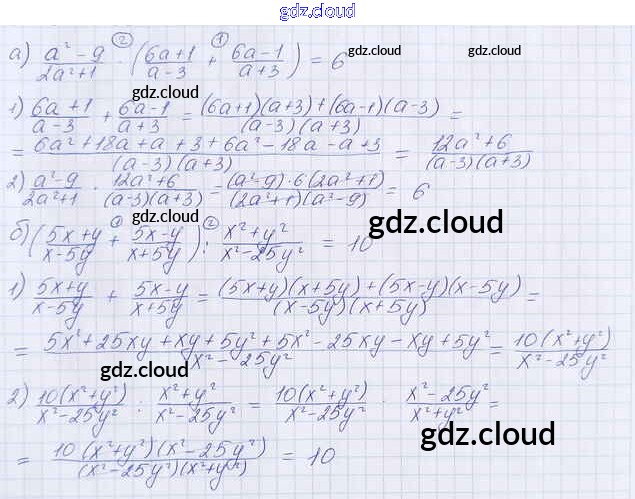 gdz.cloud
а) (a² - 9)/(2a² + 1) · ((6a+1)/(a-3) + (6a-1)/(a+3)) = 6
1) (6a+1)/(a-3) + (6a-1)/(a+3) = ((6a+1)(a+3)+(6a-1)(a-3))/((a-3)(a+3)) =
= (6a²+18a+a+3+6a²-18a-a+3)/((a-3)(a+3)) = (12a²+6)/((a-3)(a+3))
2) (a²-9)/(2a²+1) · (12a²+6)/((a-3)(a+3)) = ((a²-9)·6(2a²+1))/((2a²+1)(a²-9)) = 6
б) ((5x+y)/(x-5y) + (5x-y)/(x+5y)) : (x²+y²)/(x²-25y²) = 10
1) (5x+y)/(x-5y) + (5x-y)/(x+5y) = ((5x+y)(x+5y)+(5x-y)(x-5y))/((x-5y)(x+5y)) =
= (5x²+25xy+xy+5y²+5x²-25xy-xy+5y²)/(x²-25y²) = 10(x²+y²)/(x²-25y²)
2) 10(x²+y²)/(x²-25y²) : (x²+y²)/(x²-25y²) = 10(x²+y²)/(x²-25y²) · (x²-25y²)/(x²+y²) =
= (10(x²+y²)(x²-25y²))/((x²-25y²)(x²+y²)) = 10